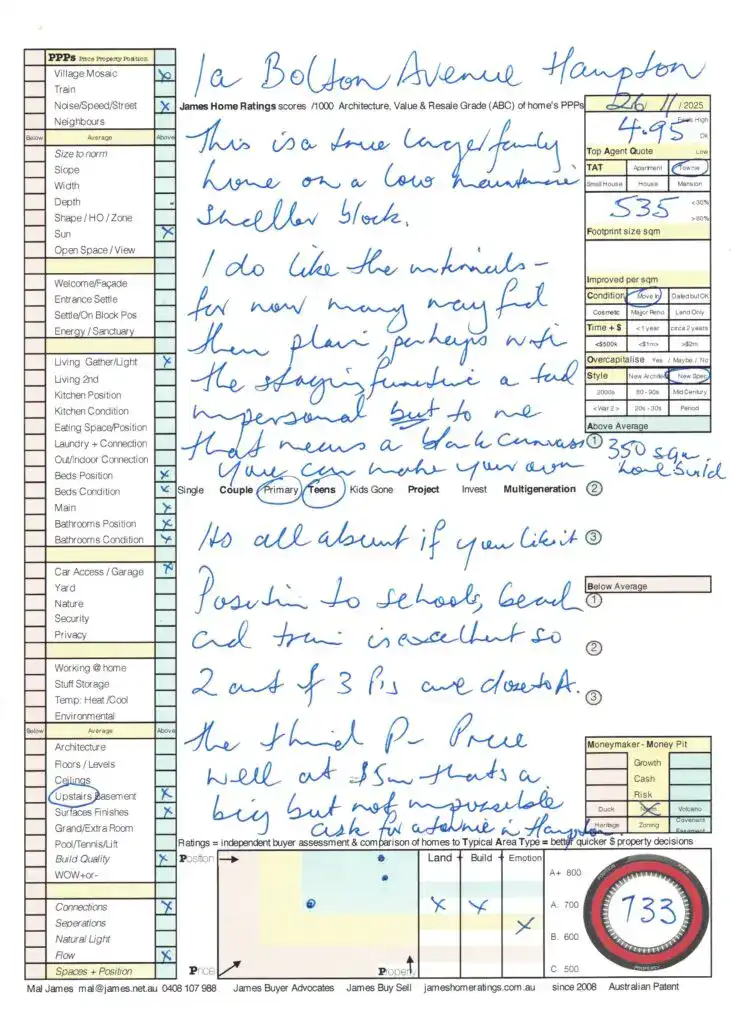 1a Bolton Avenue Hampton
James Home Ratings scores /1000 Architecture, Value & Resale Grade (ABC) of home's PPPs
PPPs Price Property Position
Village Mosaic
Train
Noise/Speed/Street
Neighbours
Below Average Above
Size to norm
Slope
Width
Depth
Shape / HO / Zone
Sun
Open Space / View
Welcome/Façade
Entrance Settle
Settle/On Block Pos
Energy / Sanctuary
Living Gather/Light
Living 2nd
Kitchen Position
Kitchen Condition
Eating Space/Position
Laundry + Connection
Out/Indoor Connection
Beds Position
Beds Condition
Main
Bathrooms Position
Bathrooms Condition
Car Access / Garage
Yard
Nature
Security
Privacy
Working @ home
Stuff Storage
Temp: Heat /Cool
Environmental
Below Average Above
Architecture
Floors / Levels
Ceilings
Upstairs Basement
Surfaces Finishes
Grand/Extra Room
Pool/Tennis/Lift
Build Quality
WOW+or-
Connections
Seperations
Natural Light
Flow
Spaces + Position
This is a true larger family
home on a low maintenance
smaller block.
I do like the materials -
for now many may find
them plain, perhaps with
the staging furniture a tad
impersonal but to me
that means a blank canvass
you can make your own
Single Couple Primary Teens Kids Gone Project Invest Multigeneration
Its all absunt if you like it
Position to schools, beach
and train is excellent so
2 out of 3 P's are close to A.
the third P - Price
well at $5m thats a
big but not impossible
ask for a townie in Hampton.
26/11/2025
4.95
High
Ok
Top Agent Quote Low
TAT Apartment Townie
Small House House Mansion
535
<30%
>80%
Footprint size sqm
Improved per sqm
Condition Move In Dated but OK
Cosmetic Major Reno Land Only
Time + $ < 1 year circa 2 years
<$500k <$1m> >$2m
Overcapitalise Yes / Maybe / No
Style New Architect New Spec
2000s 80 - 90s Mid Century
< War 2 > 20s - 30s Period
Above Average
1 350 sqm
home build
2
3
Below Average
1
2
3
Moneymaker - Money Pit
Growth
Cash
Risk
Duck Norm Volcano
Heritage Zoning Covenant
Easement
Ratings = independent buyer assessment & comparison of homes to Typical Area Type = better quicker $ property decisions
Position
Price
Property
Land + Build + Emotion
A+ 800
A. 700
B. 600
C. 500
733
Mal James mal@james.net.au 0408 107 988 James Buyer Advocates James Buy Sell jameshomeratings.com.au since 2008 Australian Patent